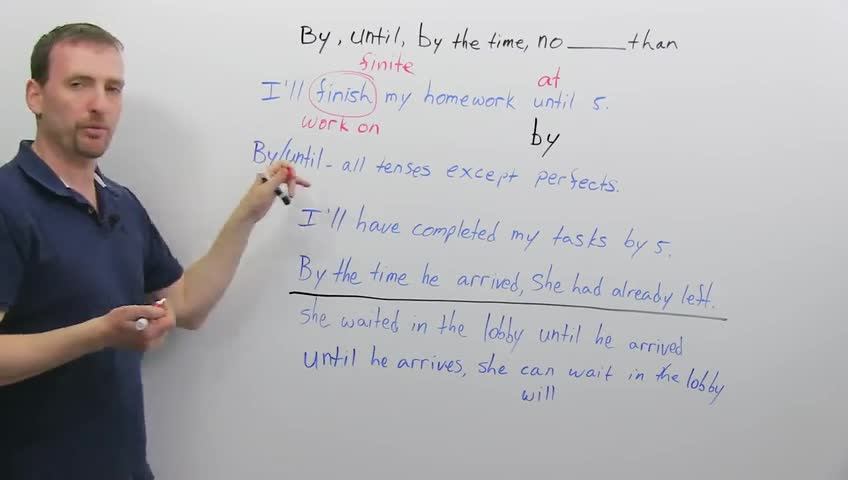 By, until, by the time, no ____ than
finite
at
I'll finish my homework until 5.
work on
by
By/until - all tenses except perfects.
I'll have completed my tasks by 5.
By the time he arrived, She had already left.
she waited in the lobby until he arrived
until he arrives, she can wait in the lobby
will